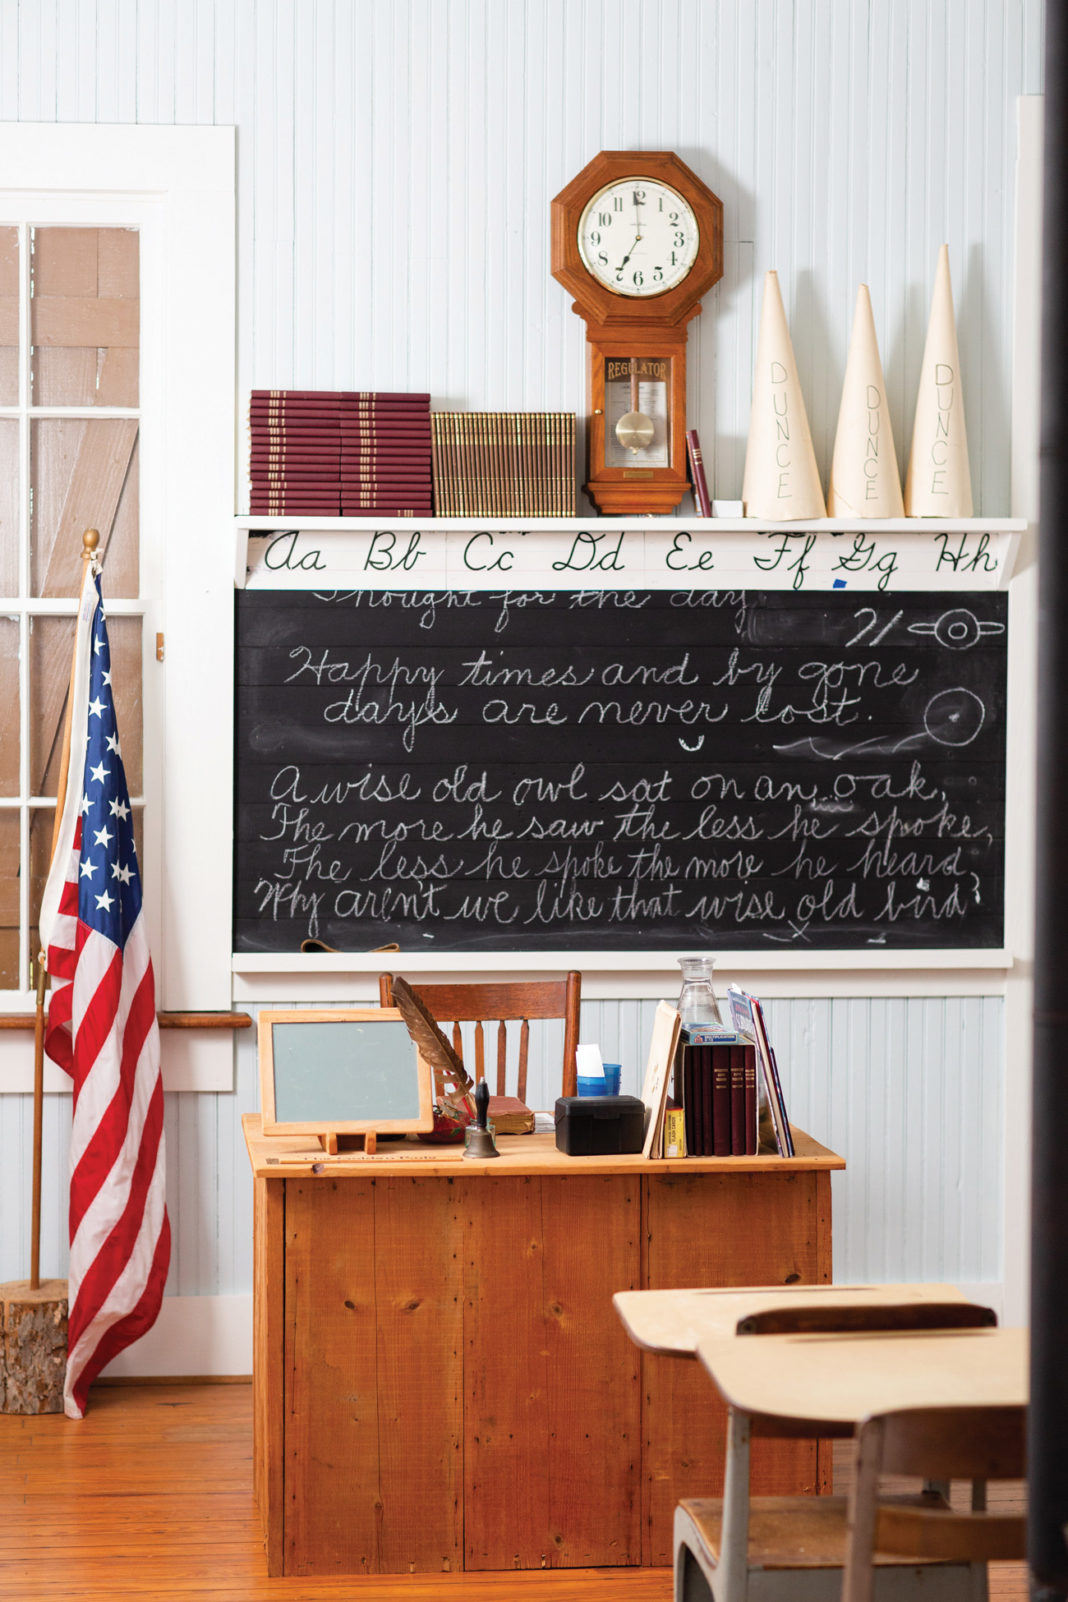 12
1
2
3
4
5
6
7
8
9
10
11
REGULATOR
DUNCE
DUNCE
DUNCE
Aa Bb Cc Dd Ee Ff Gg Hh
Thought for the day
Happy times and by gone
days are never lost.
A wise old owl sat on an oak,
The more he saw the less he spoke,
The less he spoke the more he heard,
Why aren't we like that wise old bird?